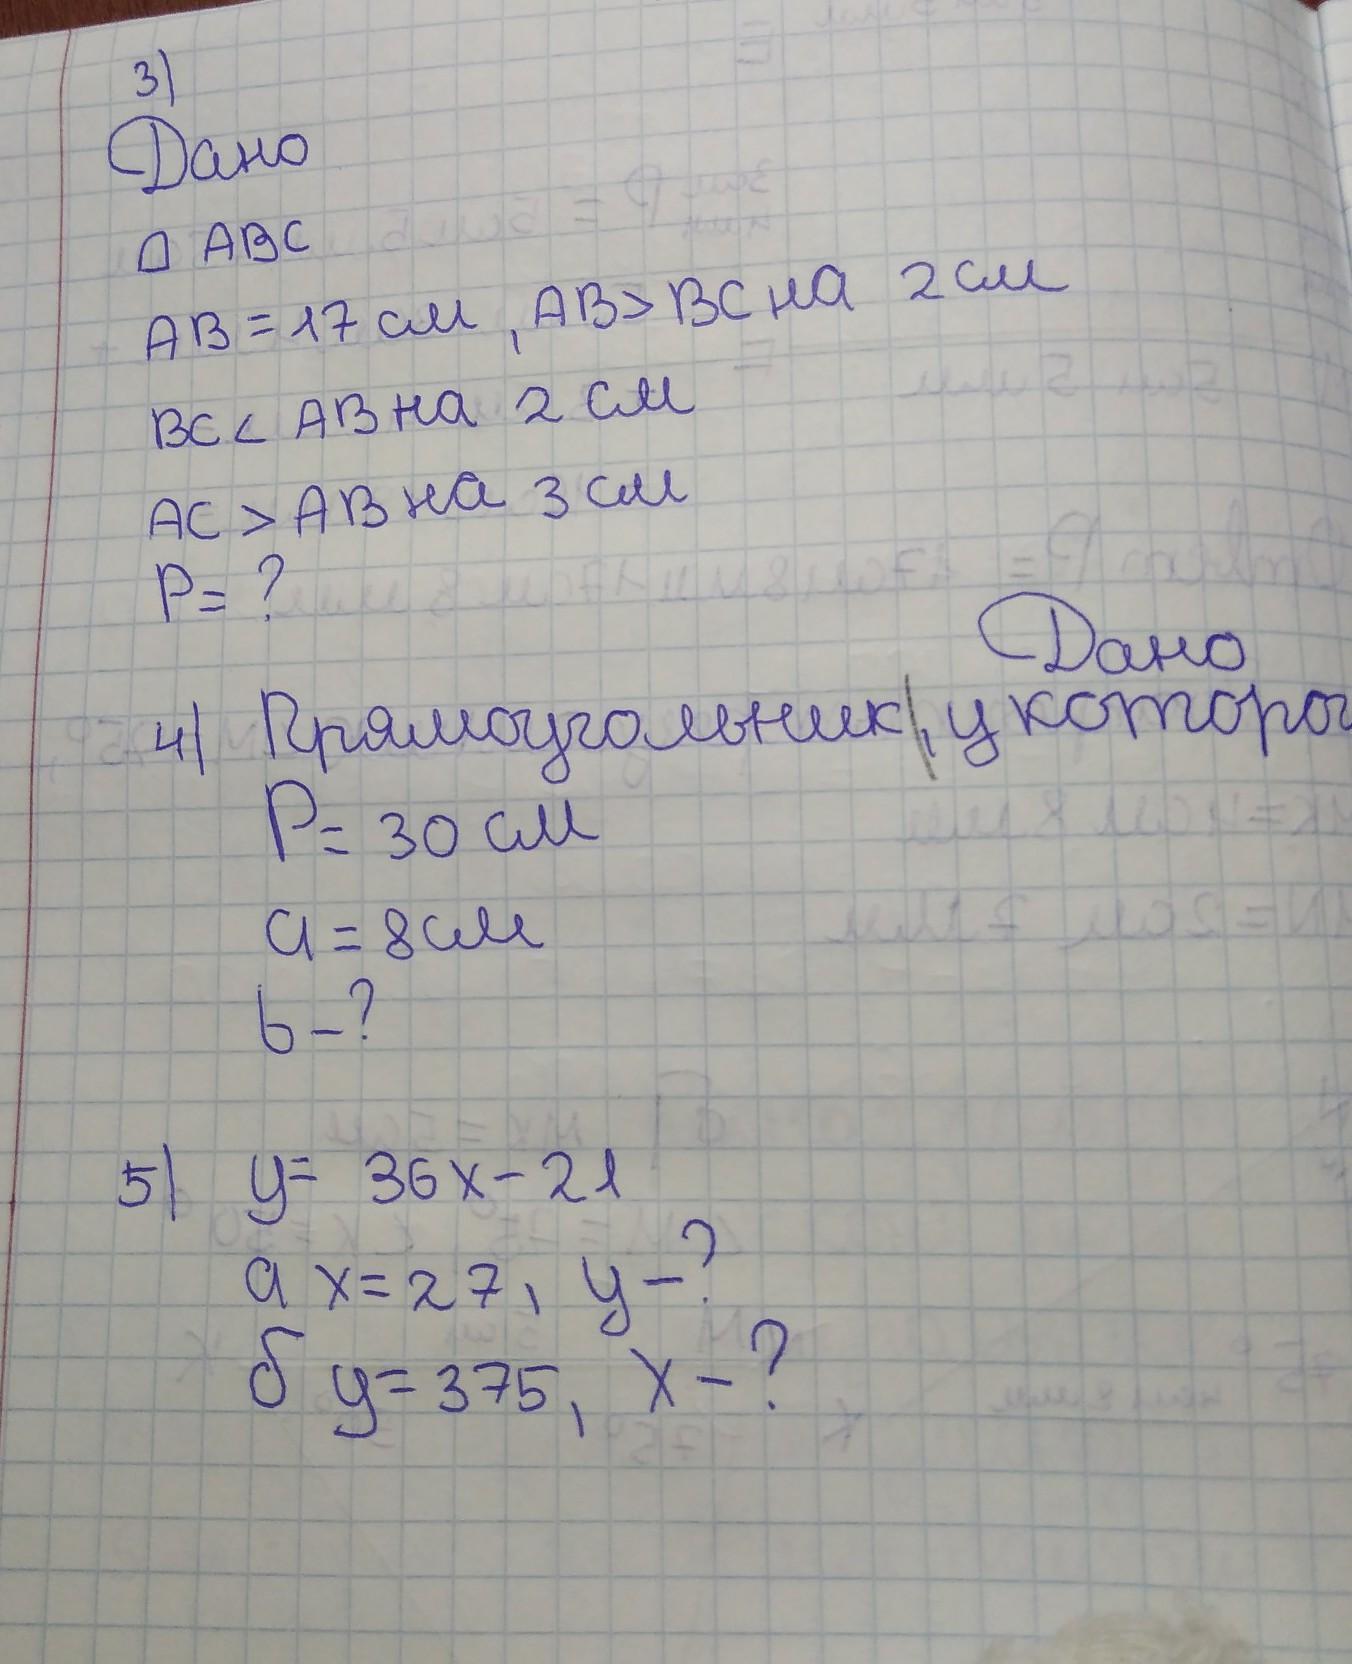 3)
Дано
△ ABC
AB = 17 см, AB > BC на 2 см
BC < AB на 2 см
AC > AB на 3 см
P = ?
Дано
4) Прямоугольник, у которо
P = 30 см
a = 8 см
b - ?
5) y = 36x - 21
а x = 27, y - ?
б y = 375, x - ?